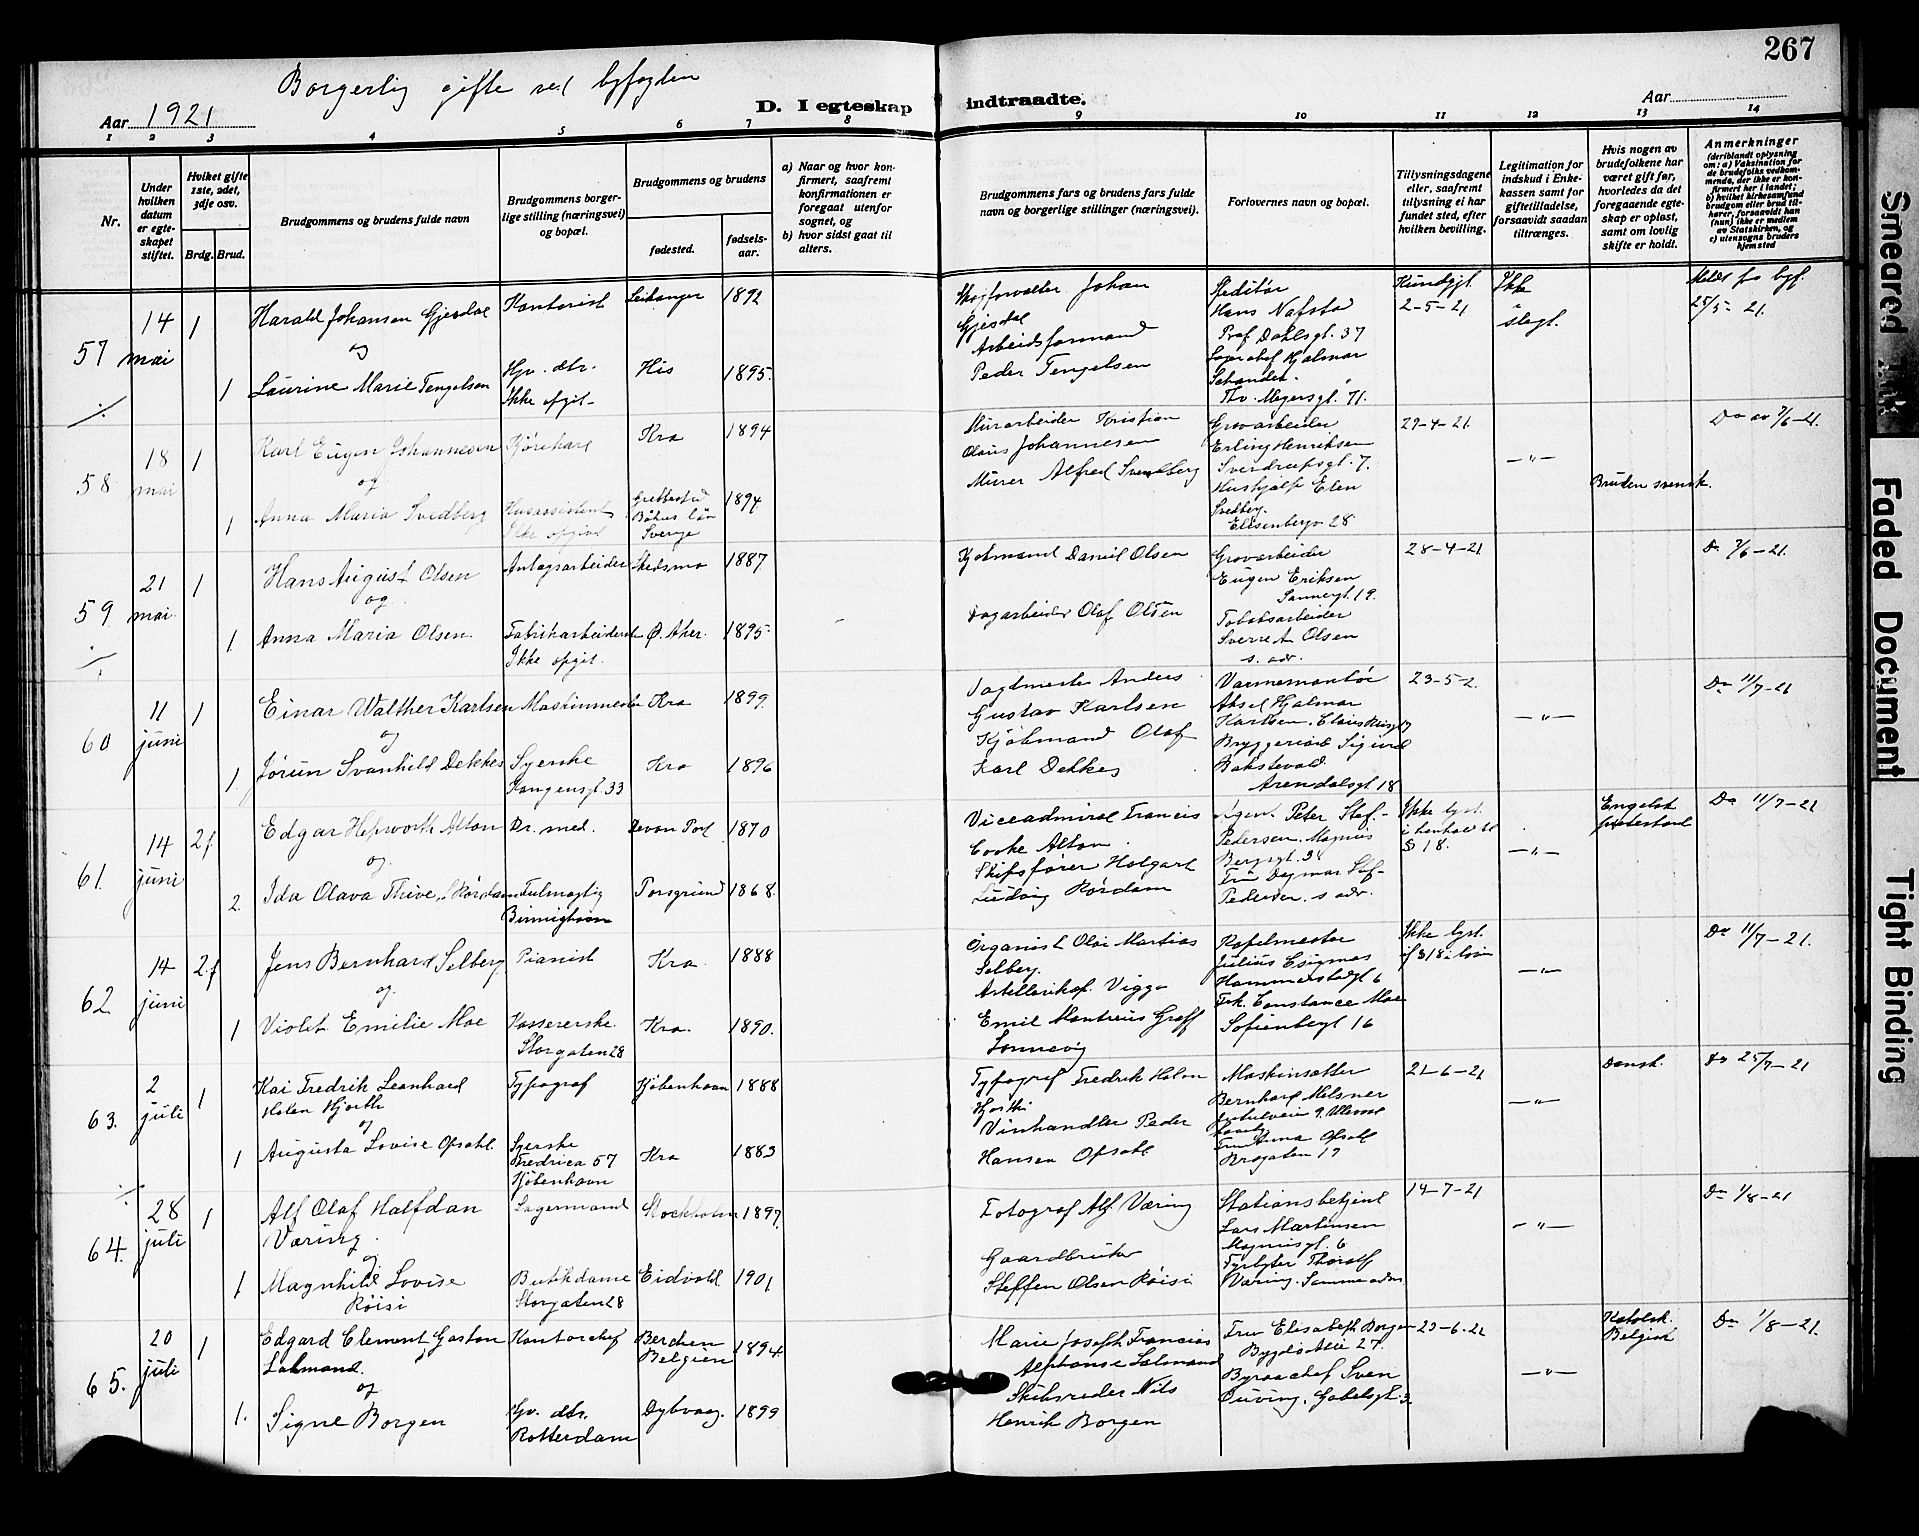 267
Borgerlig gifte ved byfogden
Aar 1921
D. I egteskap indtraadte.
Aar
1 2 3 4 5 6 7 8 9 10 11 12 13 14
Nr.
Under hvilken datum er egteskapet stiftet.
Hvilket gifte 1ste, 2det, 3dje osv.
Brdg. Brud.
Brudgommens og brudens fulde navn
Brudgommens borgerlige stilling (næringsvei) og bopæl.
Brudgommens og brudens
fødested.
fødselsaar.
a) Naar og hvor konfirmert, saafremt konfirmationen er foregaat utenfor sognet, og
b) hvor sidst gaat til alters.
Brudgommens fars og brudens fars fulde navn og borgerlige stillinger (næringsvei).
Forlovernes navn og bopæl.
Tillysningsdagene eller, saafremt tillysning ei har fundet sted, efter hvilken bevilling.
Legitimation for indskud i Enkekassen samt for giftetilladelse, forsaavidt saadan tiltrænges.
Hvis nogen av brudefolkene har været gift før, hvorledes da det foregaaende egteskap er opløst, samt om lovlig skifte er holdt.
Anmerkninger
57 14 mai 1 Harald Johansen Gjesdal Kontorist Leikanger 1892
og
1 Laurine Marie Tengelsen Hjv. dtr. Ikke opgit His 1895
Johan Gjesdal
Arbeidsformand Peder Tengelsen
Speditør Hans Nafstad
Prof Dahlsgt. 37
Hjalmar
Th. Meyersgt. 71.
Kundgjt 2-5-21
Ikke slegt.
Meldt fra byf. 25/5-21.
58 18 mai 1 Karl Eugen Johannesen Kjørekarl Kra 1894
og
1 Anna Maria Svedberg Husassistent Ikke opgivet Grebbestad Bohus län Sverge 1894
Murarbeider Kristian Olaus Johannesen
Murer Alfred Svedberg
Grovarbeider Erling Henriksen
Sverdrupsgt. 7.
Hushjælp Elen Svedberg.
Elisenbergv 28
29-4-21
Bruden svensk.
59 21 mai 1 Hans August Olsen Anlægsarbeider Skedsmo 1887
og
1 Anna Maria Olsen. Fabrikarbeiderske Ikke opgit. Ø. Aker. 1895
Kjøbmand Daniel Olsen
Dagarbeider Olaf Olsen
Grovarbeider Eugen Eriksen
Sannergt. 19.
Tobaksarbeider Sverre A. Olsen
s. adr.
28-4-21
60 11 juni 1 Einar Walther Karlsen Maskinmester Kra 1899
og
1. Jørun Svanhild Dekkes Syerske Kra 1896
Vagtmester Anders Gustav Karlsen
Kjøbmand Olaf Karl Dekkes
Varmemontør Aksel Hjalmar Karlsen.
Sigurd
Arendalsgt 18
23-5-2.
Do 11/7-21
61. 14 juni 2f Edgar Hepworth Alton Dr. med. Devon Port 1870
og
2. Ida Olava Thive, f. Rørdam Fulmægtig Birmigham Porsgrund 1868.
Viceadmiral Francis Cooke Alton
Skipsfører Holgart Ludvig Rørdam
Agent Peter Stef. Pedersen. Magnus Bergsgt. 34
Fru Dagmar Stef-Pedersen. s adr.
Ikke lyst. i henhold til § 18.
Engelsk protestant
Do 11/7-21
62. 14 juni 2f Jens Bernhard Selberg Pianist Kra. 1888
og
1 Violet Emilie Moe Kassererske. Storgaten 28 Kra. 1890.
Organist Olai Martias Selberg.
Viggo Emil Montreus Graff Sonnevig
Kapelmester Julius
Hammerstadgt 6
Frk. Constance Moe
Sofienbergt 16
Ikke lyst. if § 18 i loven
Do 11/7-21.
63. 2 juli 1 Kai Fredrik Leonhard Holm Hjorth Typograf Kjøbenhavn 1888
og
1 Augusta Lovise Opsahl. Syerske Fredrica 57 Kjøbenhavn Kra 1883
Typograf Fredrik Holm Hjorth
Vinhandler Peder Hansen Opsahl
Maskinsætter Bernhard Melsner
Fru Anna Opsahl
Brogaten 17
21-6-21
Dansk.
Do 25/7-21
64. 28 juli 1 Alf Olaf Halfdan Væring Lagermand Stockholm 1897
og
1 Magnhild Lovise Røisi Butikdame Storgaten 28 Eidvold 1901
Fotograf Alf Væring
Gaardbruker Steffen Olsen Røisi
Stationsbetjent Lars Martinsen
Magnusgt. 6
Fyrbøter Thoralf Væring. Samme adr.
14-7-21
Do 1/8-21
65. 20 juli 1 Edgard Clement Gaston Lalmand. Kontorchef Berchen Belgien 1894
og
1. Signe Borgen Hjv. dtr. Rotterdam Dybvaag. 1899
Marie Joseph Francias Alphonse Lalmand
Skibsreder Nils Henrik Borgen
Fru Elisabeth Borgen
Bygdø Alle 27.
Byraachef Sven Gabelsgt. 3
23-6-21
Katolsk. Belgisk
Do 1/8-21.
Smeared Ink
Faded Document
Tight Binding